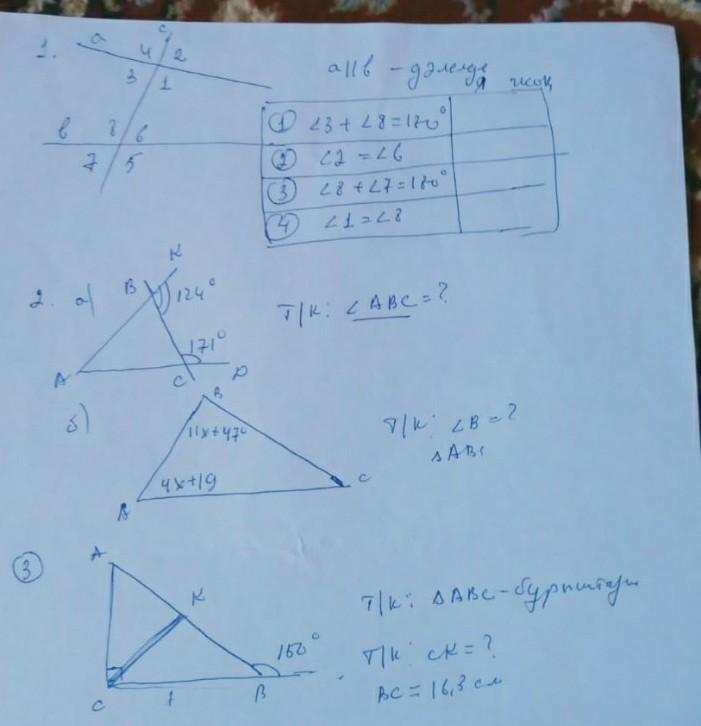 1.
a
c
4 2
3 1
b 8 6
7 5
a||b - дәлелде
я жоқ
① ∠3 + ∠8 = 180°
② ∠2 = ∠6
③ ∠8 + ∠7 = 180°
④ ∠1 = ∠8
2. а)
K
B 124°
171°
A C D
Т/К: ∠ABC = ?
б)
B
11x+47°
4x+19
A C
Т/К: ∠B = ?
△ABC
③
A
K
150°
C B
Т/К: △ABC - бұрыштары
Т/К: CK = ?
BC = 16,3 см